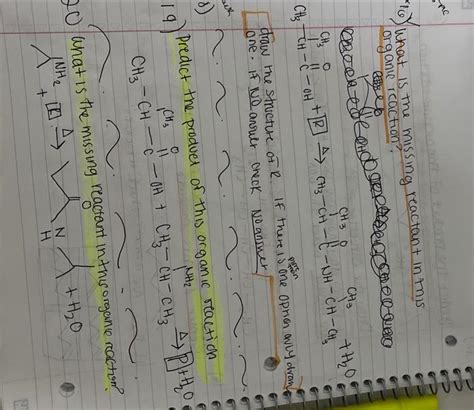 What is the missing reactant in this
organic reaction?
CH3 O CH3 O CH3
CH3-CH-C-OH + R Δ→ CH3-CH-C-NH-CH-CH3 + H2O
draw the structure of R. If there is one option only draw
one. If NO answer check No answer
19) Predict the product of this organic reaction
CH3 O NH2
CH3-CH-C-OH + CH3-CH-CH3 Δ→ P + H2O
20) What is the missing reactant in this organic reaction?
NH2 + R Δ→ O N H + H2O